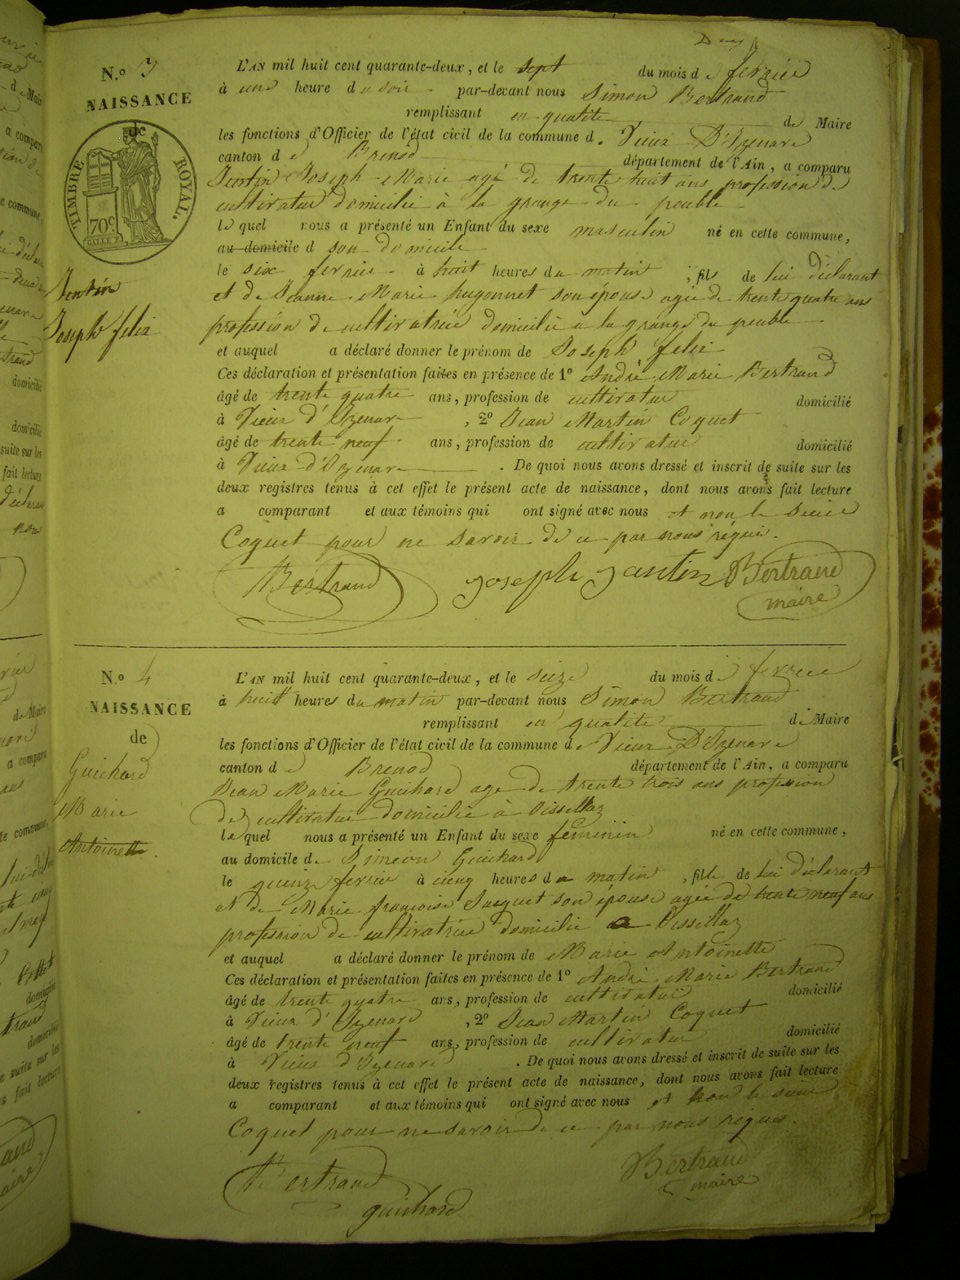 Deux
N.º 3
NAISSANCE
TIMBRE ROYAL.
70c
Jantin
Joseph felix
L'AN mil huit cent quarante-deux, et le sept du mois de fevrier
à une heure du soir par-devant nous Simon Bertrand
remplissant en qualite de Maire
les fonctions d'Officier de l'état civil de la commune d. Vieux D'Izenave
canton de Brenod département de l'Ain, a comparu
Jantin Joseph Marie agé de trente huit ans profession de
cultivateur domicilié à la grange du peuble
lequel nous a présenté un Enfant du sexe masculin né en cette commune,
au domicile d son domicile
le six fevrier à huit heures du matin, fils de lui déclarant
et de Jeanne Marie hugonnet son épouse agée de trente quatre ans
profession de cultivatrice domicilié a la grange du peuble
et auquel a déclaré donner le prénom de Joseph felix
Ces déclaration et présentation faites en présence de 1º André Marie Bertrand
âgé de trente quatre ans, profession de cultivateur domicilié
à Vieux d'Izenave, 2º Jean Martin Coquet
âgé de trente neuf ans, profession de cultivateur domicilié
à Vieux d'Izenave. De quoi nous avons dressé et inscrit de suite sur les
deux registres tenus à cet effet le présent acte de naissance, dont nous avons fait lecture
a comparant et aux témoins qui ont signé avec nous et non le sieur
Coquet pour ne savoir de ce par nous réquis.
Bertrand joseph jantin Bertrand
maire
N.º 4
NAISSANCE
de
Guichard
Marie
Antoinette.
L'AN mil huit cent quarante-deux, et le seize du mois de fevrier
à huit heures du matin par-devant nous Simon Bertrand
remplissant en qualite de Maire
les fonctions d'Officier de l'état civil de la commune de Vieux D'Izenave
canton de Brenod département de l'Ain, a comparu
Jean Marie Guichard age de trente trois ans profession
de cultivateur domicilié à Oisselaz
lequel nous a présenté un Enfant du sexe féminin né en cette commune,
au domicile de Simeon Guichard
le quinze fevrier à cinq heures du matin, fille de lui déclarant
et de Marie françoise Jacquet son épouse agée de trente neuf ans
profession de cultivatrice domicilié a Oisselaz
et auquel a déclaré donner le prénom de Marie Antoinette
Ces déclaration et présentation faites en présence de 1º André Marie Bertrand
âgé de trente quatre ans, profession de cultivateur domicilié
à Vieux d'Izenave, 2º Jean Martin Coquet
âgé de trente neuf ans, profession de cultivateur domicilié
à Vieux d'Izenave. De quoi nous avons dressé et inscrit de suite sur les
deux registres tenus à cet effet le présent acte de naissance, dont nous avons fait lecture
a comparant et aux témoins qui ont signé avec nous et non le sieur
Coquet pour ne savoir de ce par nous requis.
Bertrand Bertrand
maire
guichard